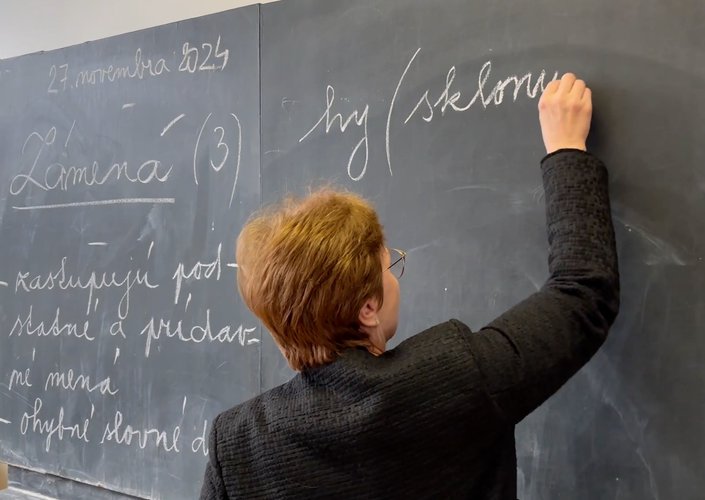 27. novembra 2024
Zámená (3)
- zastupujú pod-
statné a prídav-
né mená
- ohybné slovné d
hy (sklonu